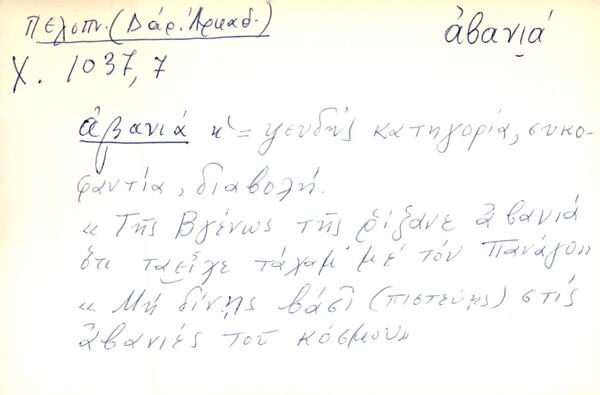 Πελοπν. (Δάρ. Ἀρκαδ.)
ἀβανιά
Χ. 1037,7
ἀβανιά ἡ = ψευδής κατηγορία, συκο-
φαντία, διαβολή.
« Τῆς Βγένως τῆς ρίξανε ἀβανιά
ὅτι ταεἶχε τάχαμ' μέ τόν Πανάγο»
« Μή δίνῃς βάσι (πιστεύῃς) στίς
ἀβανιές τοῦ κόσμου»